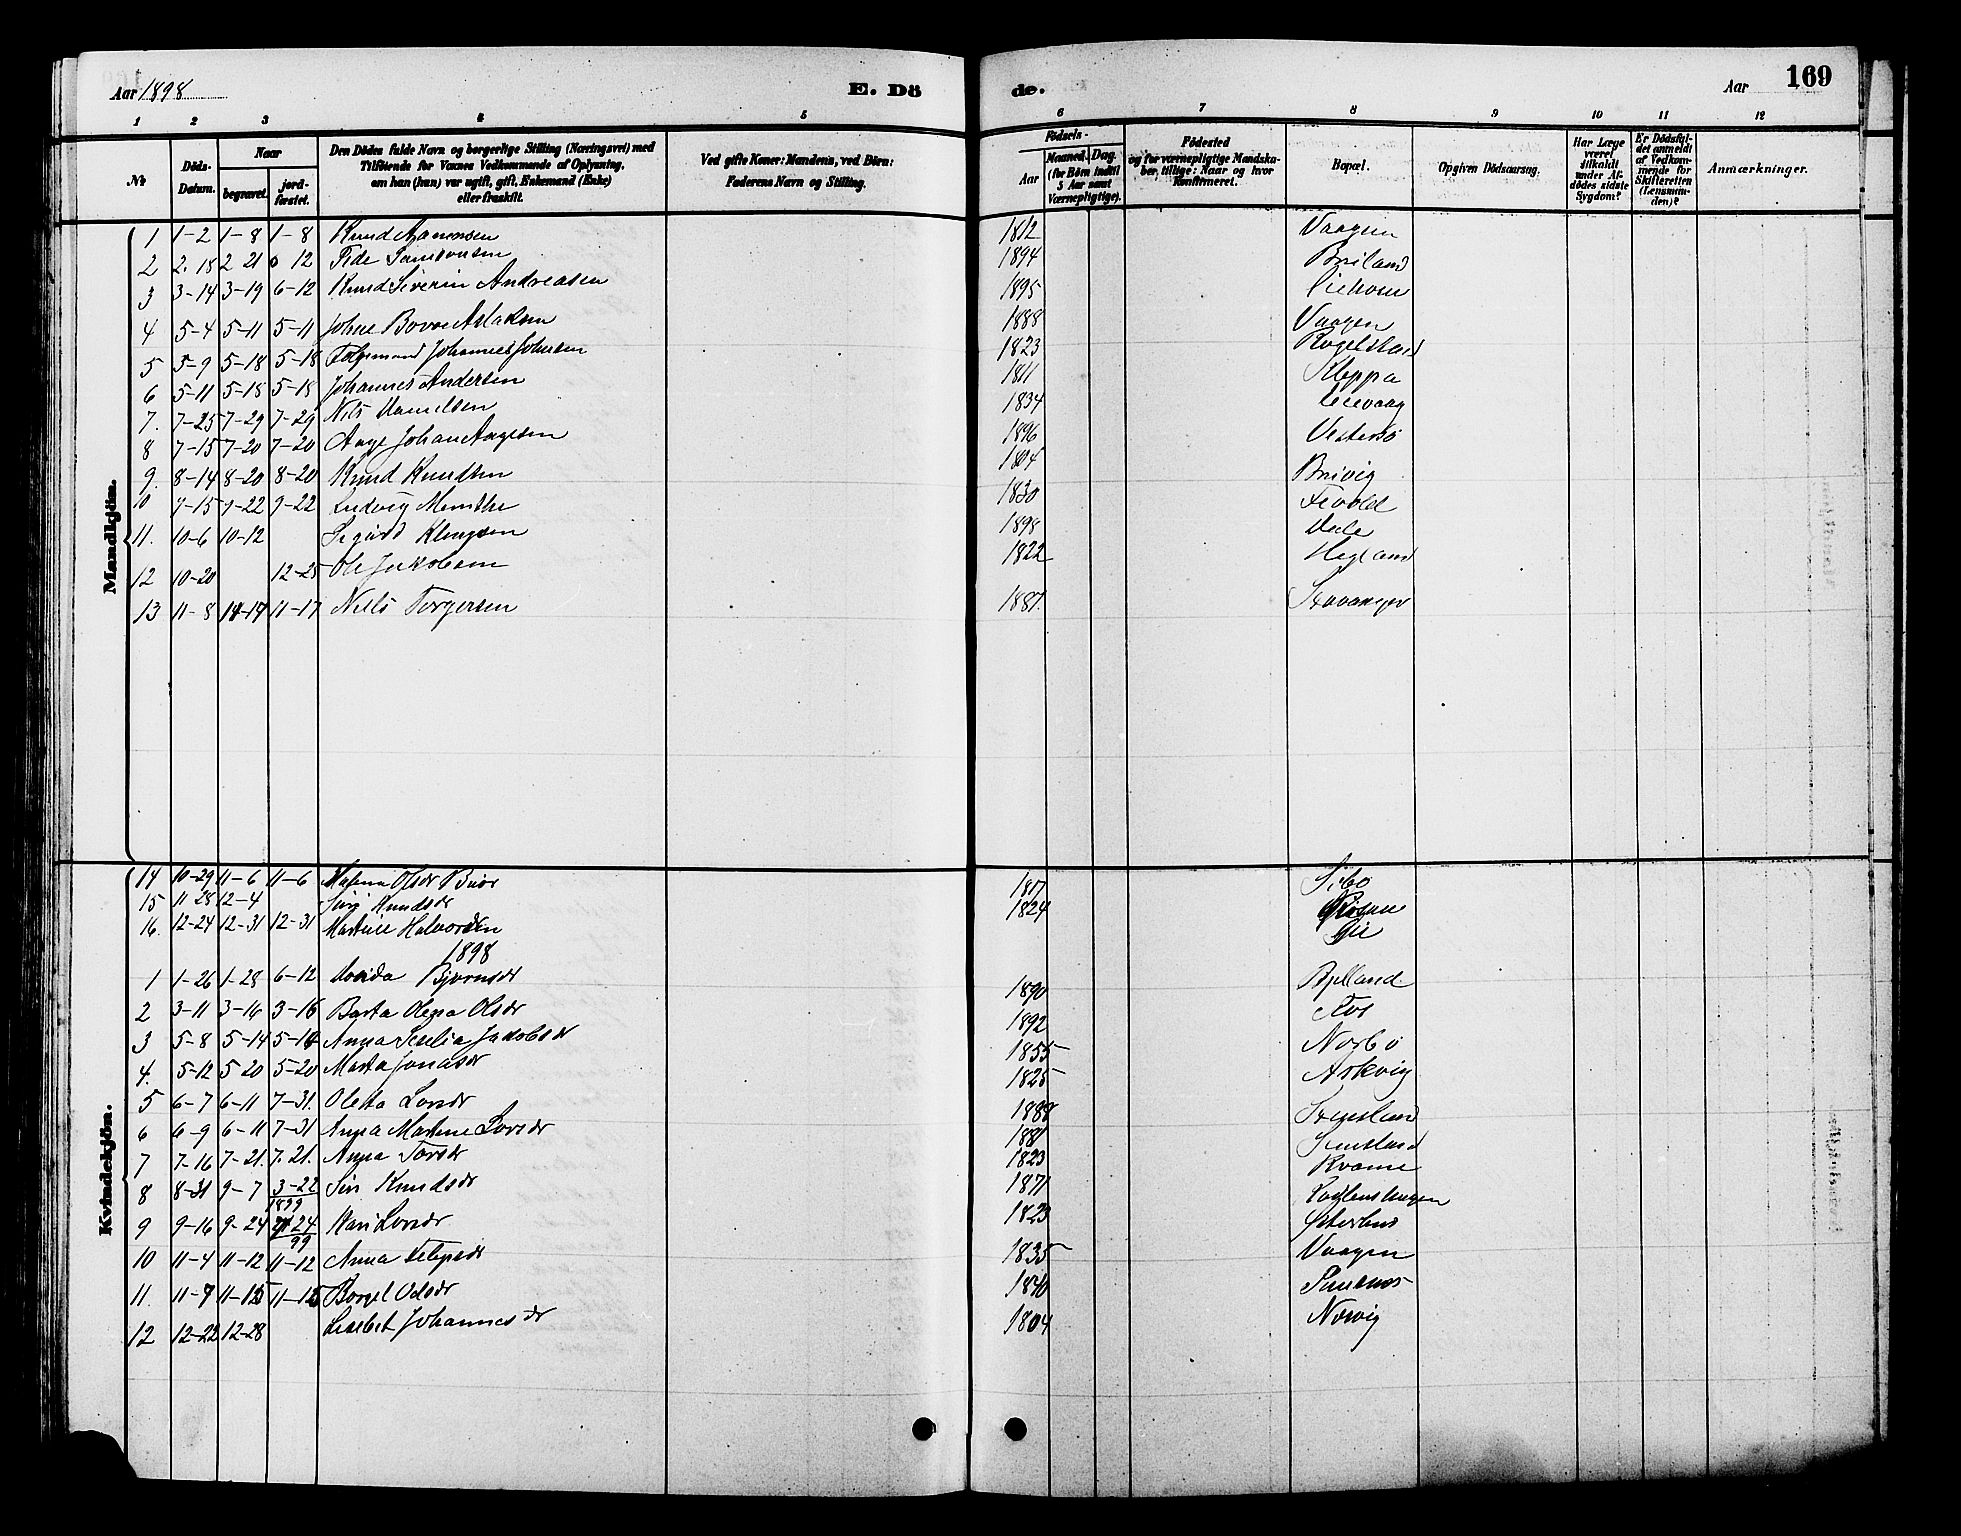 Aar 1898 E. Dö de. Aar 169
1 2 3 4 5 6 7 8 9 10 11 12
№
Döds-Datum.
Naar
begravet.
jord-fæstet.
Den Dödes fulde Navn og borgerlige Stilling (Næringsvei) med
Tilföiende for Voxnes Vedkommende af Oplysning,
om han (hun) var ugift, gift, Enkemand (Enke)
eller fraskilt.
Ved gifte Koner: Mandens, ved Börn:
Faderens Navn og Stilling.
Födsels-
Aar
Maaned. Dag.
(for Börn indtil
5 Aar samt
Værnepligtige).
Födested
og for værnepligtige Mandska-
ber, tillige: Naar og hvor
Konfirmeret.
Bopæl.
Opgiven Dödsaarsag.
Har Læge
været
tilkaldt
under Af-
dödes sidste
Sygdom?
Er Dödsfal-
det anmeldt
af Vedkom-
mende for
Skifteretten
(Lensman-
den)?
Anmærkninger.
Mandkjön.
1 1-2 1-8 1-8 Knud Aanensen 1812 Vaagen
2 2-18 2 21 12 Tede Samsonsen 1894 Breiland
3 3-14 3-19 6-12 Knud Siverin Andreasen 1895
4 5-4 5-11 5-11 Johne Aslaksen 1888 Vaagen
5 5-9 5-18 5-18 Johannes Johnsen 1823 Rogelstad
6 5-11 5-18 5-18 Johannes Andersen 1811 Kleppa
7. 7-25 7-29 7-29 Nils Danielsen 1834
8 7-15 7-20 7-20 Aage Johan Aagesen 1896 Vestersö
9. 8-14 8-20 8-20 Knud Knudsen Breivig
10 9-15 9-22 9-22 Ludvig Menthe 1830 Tevold
11. 10-6 10-12 Sigurd 1898 Dale
12 10-20 12-25 Ole Jakobsen 1822 Hegland
13 11-8 11-17 11-17 Niels Torgersen 1887. Stavanger
Kvindekjön.
14 10-29 11-6 11-6 Malena Olsdr 1817 Sibö
15 11 28 12-4 Siri Knudsdr 1824
16. 12-24 12-31 12-31 Martine Halvorsen
1898
1 1-26 1-28 6-12 Bjørnsdr 1890
2 3-11 3-16 3-16 Berta Olena Olsdr 1892
3 5-8 5-14 5-14 Anna Serelia Jakobsdr 1855 Norbö
4. 5-12 5 20 5-20 Marta Jonasdr 1825 Askvig
5 6-7 6-11 7-31. Olena Larsdr 1888 Stensland
6 6-9 6-11 7-31 Anna Martine Larsdr 1881 Stensland
7 7-16 7-21. 7-21. Anna Torsdr 1823 Kvame
8 8-31 9-7 3-22 1899 Siri Knudsdr 1871
9 9-16 9-24 24 99 Kari Larsdr 1823 Østerhus
10 11-4 11-12 11-12 Anna 1835 Vaagen
11. 11-7 11-15 11-15 Borgel Odsdr 1840
12 12-22 12-28 Lisebet Johannesdr 1804 Norvig